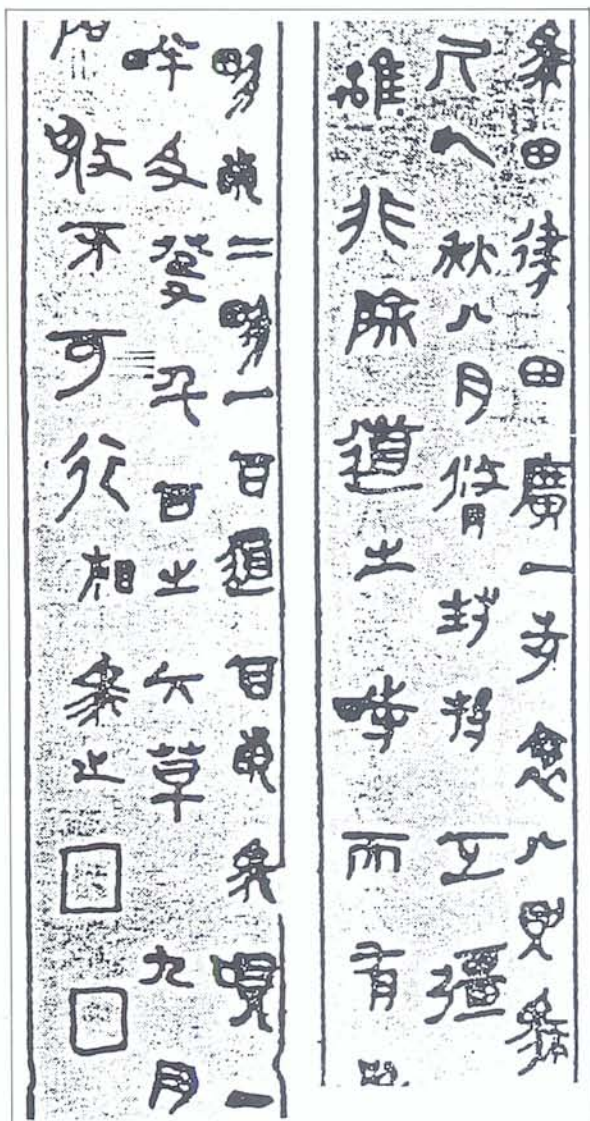 為田律田廣一步袤八則為
尺以秋八月脩封捋正彊
離非除道之時而有
畛畝二畛一百道百畝為頃一
畔及癹千百之大草九月
陷敗不可行相為之□□